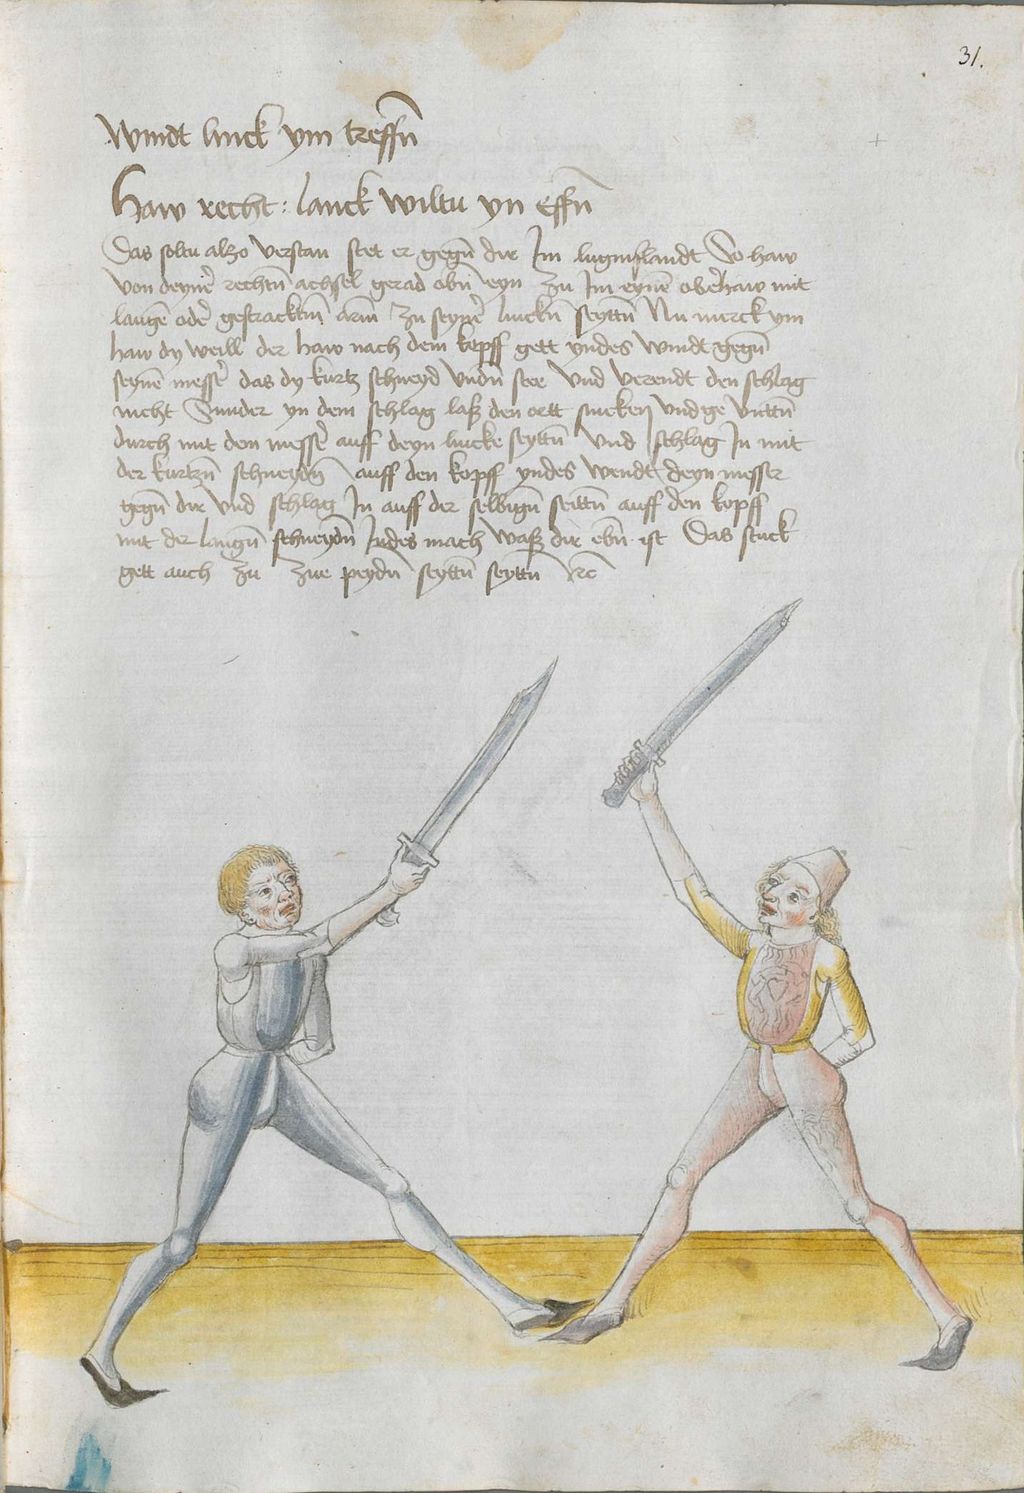 31.
Windt linck ym treffñ
Haw recht: lanck wiltu yn Effñ
Das soltu alzo verstan stet er gegñ dir Im luginslandt So haw
von deyneʳ rechtñ achsel gerad obñ eyn zu Im eynē obeʳhaw mit
langē odeʳ gestracktm arm̄ zu seyneʳ linckñ seyttñ Nu merck ym
haw dy weill der haw nach dem kopff gett yndes windt gegñ
seynē messeʳ das dy kurtz schneyd vndñ stee vnd verendt den schlag
nicht Sunder yn dem schlag laß den ortt sincken vnd ge vnttñ
durch mit dem messeʳ auff deyn lincke seyttñ vnd schlag In mit
der kurtzñ schneydñ auff den kopff yndes wendt deyn messer
gegñ dir vnd schlag In auff der selbigñ seittñ auff den kopff
mit der langñ schneydñ Indes mach waß dir ebñ ist Das stuck
gett auch zu zue peydñ seyttñ seyttñ ꝛc